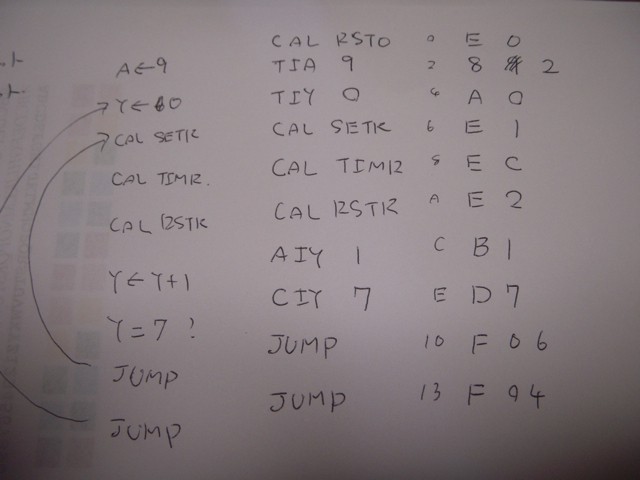 CAL RST0 0 E 0
A←9 TIA 9 2 8 2
Y←0 TIY 0 4 A 0
CAL SETR CAL SETR 6 E 1
CAL TIMR. CAL TIMR 8 E C
CAL RSTR CAL RSTR A E 2
Y←Y+1 AIY 1 C B 1
Y=7 ? CIY 7 E D 7
JUMP JUMP 10 F 0 6
JUMP JUMP 13 F 0 4